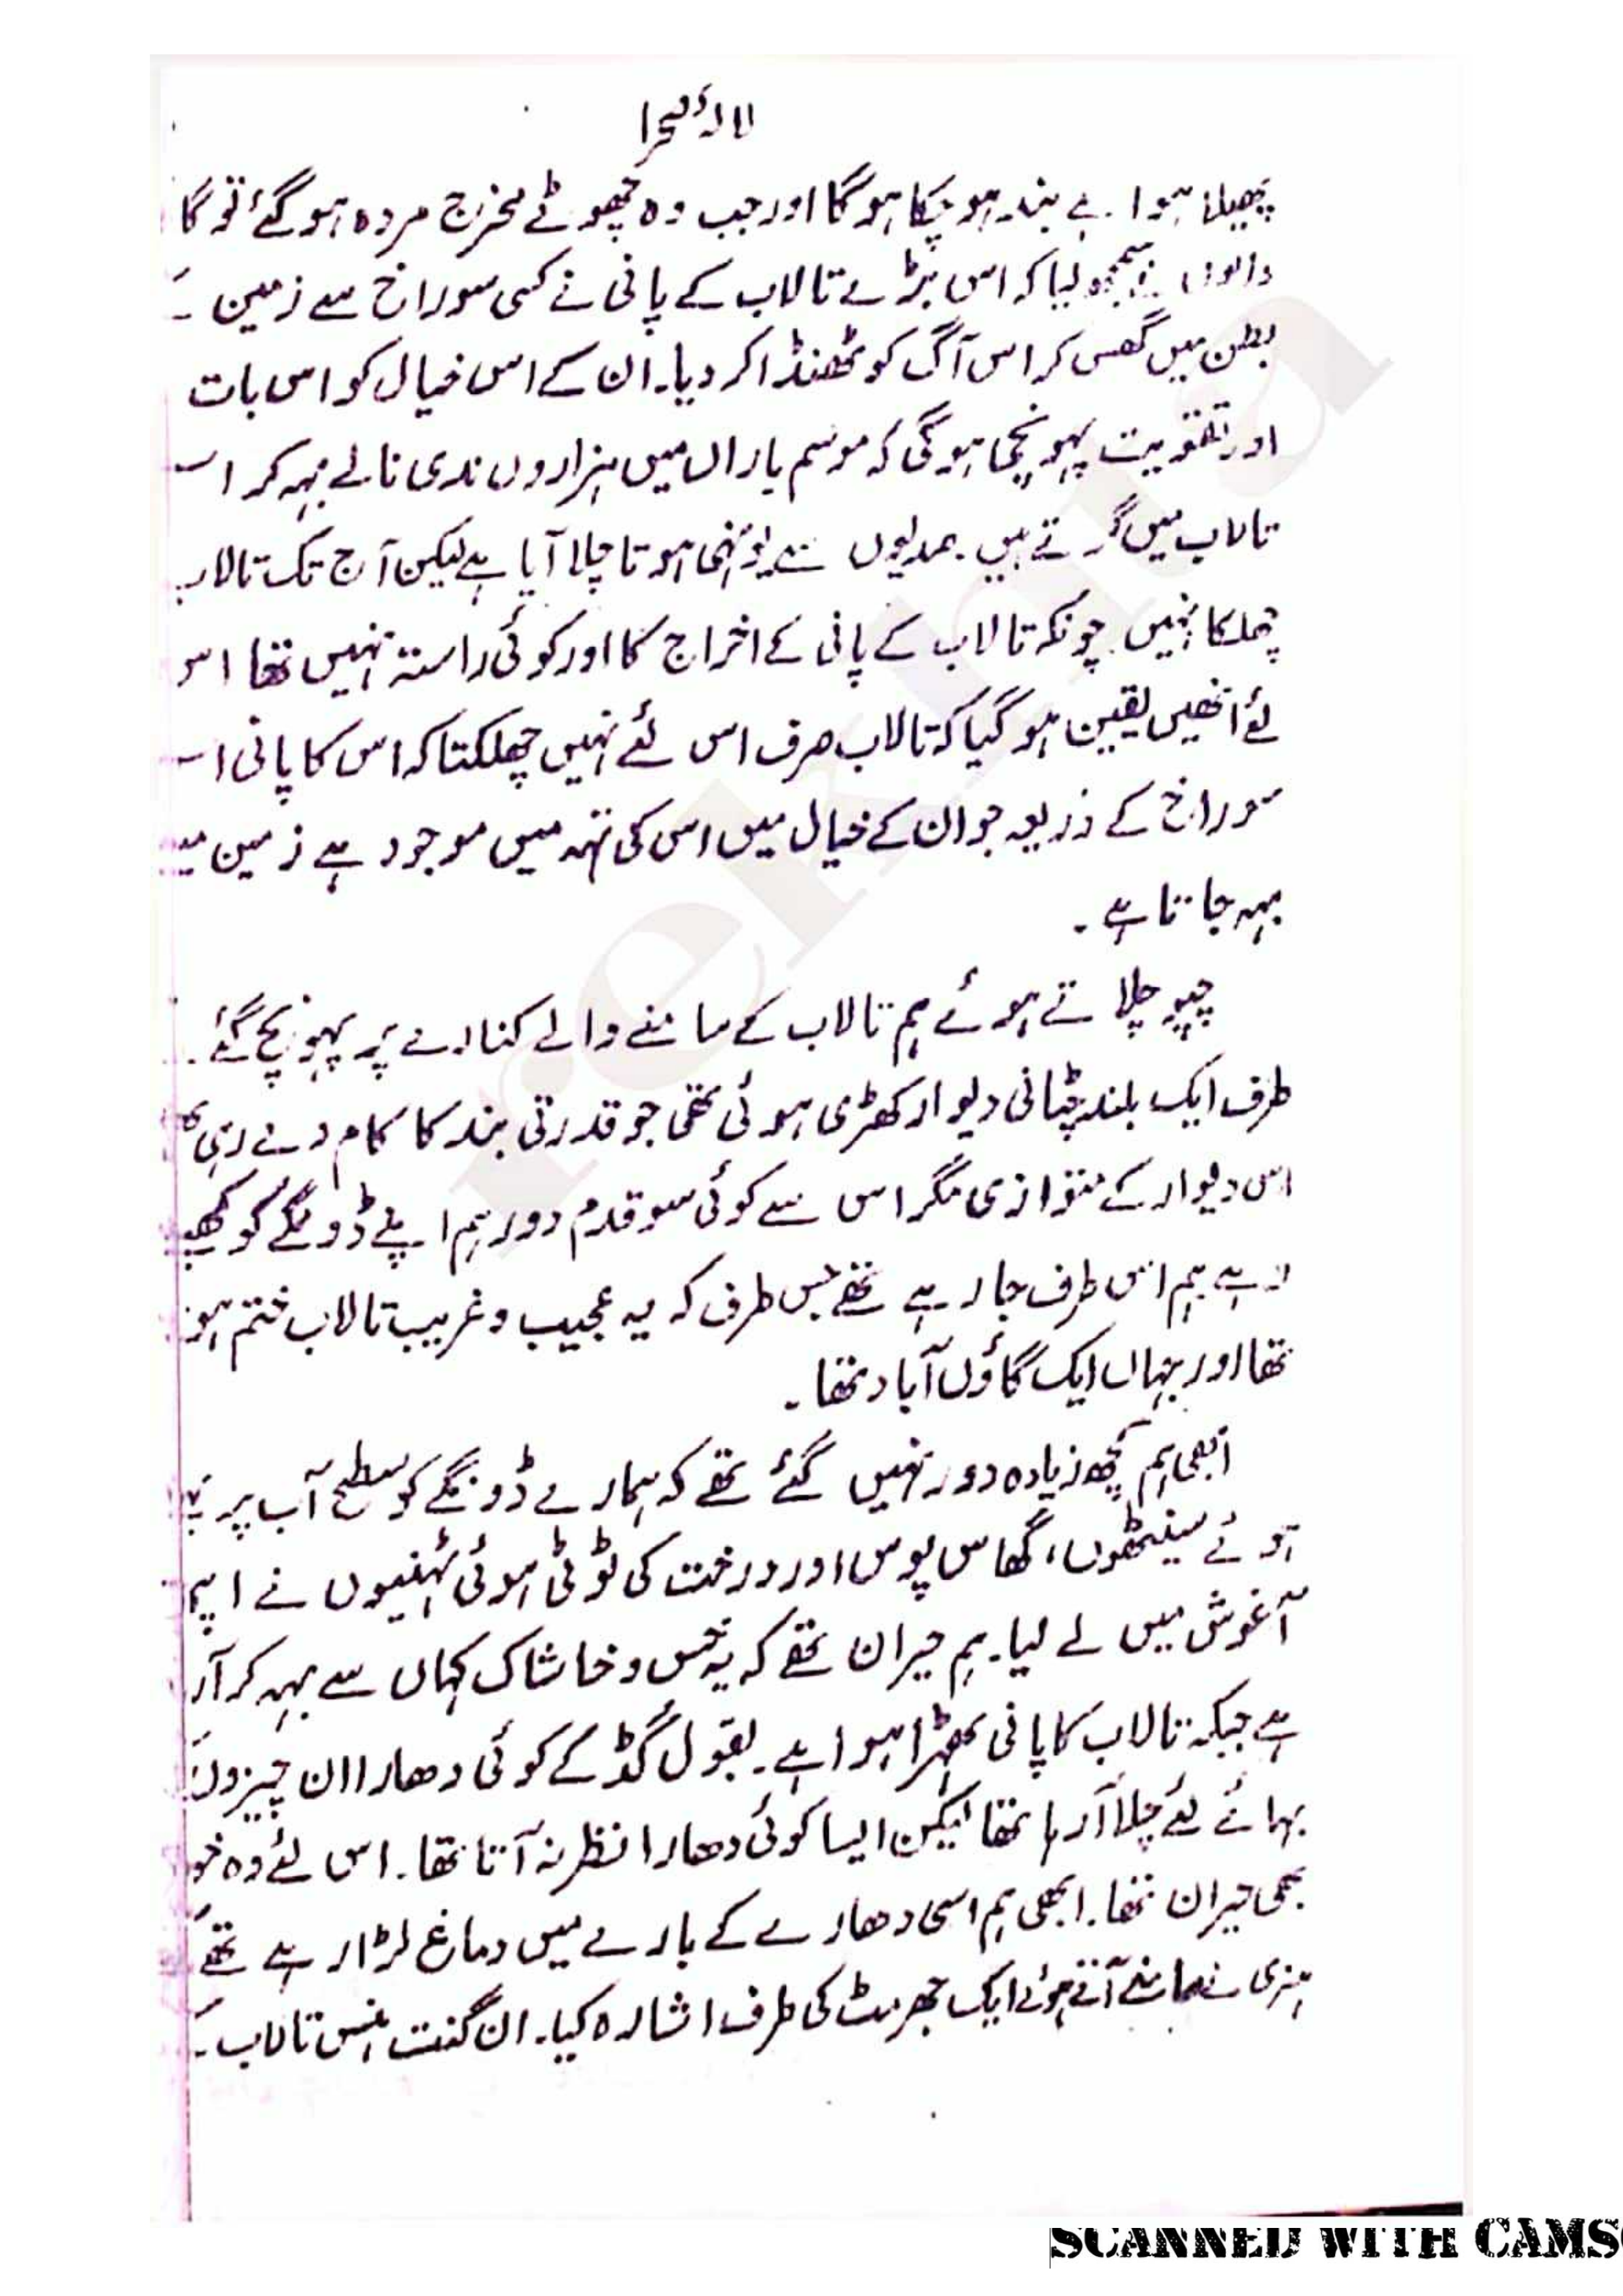 لالۂ صحرا
پھیلا ہوا ہے بند ہو چکا ہوگا اور جب وہ چھوٹے مخرج مردہ ہو گئے تو گا
والوں نے سمجھ لیا کہ اس بڑے تالاب کے پانی نے کسی سوراخ سے زمین کے
بطن میں گھس کر اس آگ کو ٹھنڈا کر دیا۔ ان کے اس خیال کو اس بات
اور تقویت پہونچی ہوگی کہ موسم باراں میں ہزاروں ندی نالے بہہ کر ا
تالاب میں گرتے ہیں۔ صدیوں سے یونہی ہوتا چلا آیا ہے لیکن آج تک تالاب
چھلکا نہیں۔ چونکہ تالاب کے پانی کے اخراج کا اور کوئی راستہ نہیں تھا اس
لئے انھیں یقین ہو گیا کہ تالاب صرف اس لئے نہیں چھلکتا کہ اس کا پانی ا
سوراخ کے ذریعہ جو ان کے خیال میں اس کی تہہ میں موجود ہے زمین میں
بہہ جاتا ہے۔
چپو چلاتے ہوئے ہم تالاب کے سامنے والے کنارے پر پہونچ گئے۔
طرف ایک بلند چٹانی دیوار کھڑی ہوئی تھی جو قدرتی بند کا کام دے رہی تھی
اس دیوار کے متوازی مگر اس سے کوئی سو قدم دور ہم اپنے ڈونگے کو کھے
رہے ہم اس طرف جا رہے تھے جس طرف کہ یہ عجیب و غریب تالاب ختم ہو
تھا اور یہاں ایک گاؤں آباد تھا۔
ابھی ہم کچھ زیادہ دور نہیں گئے تھے کہ ہمارے ڈونگے کو سطح آب پر
ہوئے سینٹھوں، گھاس پوس اور درخت کی ٹوٹی ہوئی ٹہنیوں نے اپنی
آغوش میں لے لیا۔ ہم حیران تھے کہ یہ خس و خاشاک کہاں سے بہہ کر آر
ہے جبکہ تالاب کا پانی ٹھہرا ہوا ہے۔ بقول گڈ کے کوئی دھارا ان چیزوں
بہائے لئے چلا آرہا تھا لیکن ایسا کوئی دھارا نظر نہ آتا تھا۔ اس لئے وہ خو
بھی حیران تھا۔ ابھی ہم اسی دھارے کے بارے میں دماغ لڑا رہے تھے
ہنری نے سامنے آتے ہوئے ایک جھرمٹ کی طرف اشارہ کیا۔ ان گنت ہنس تالاب کے
SCANNED WITH CAMS